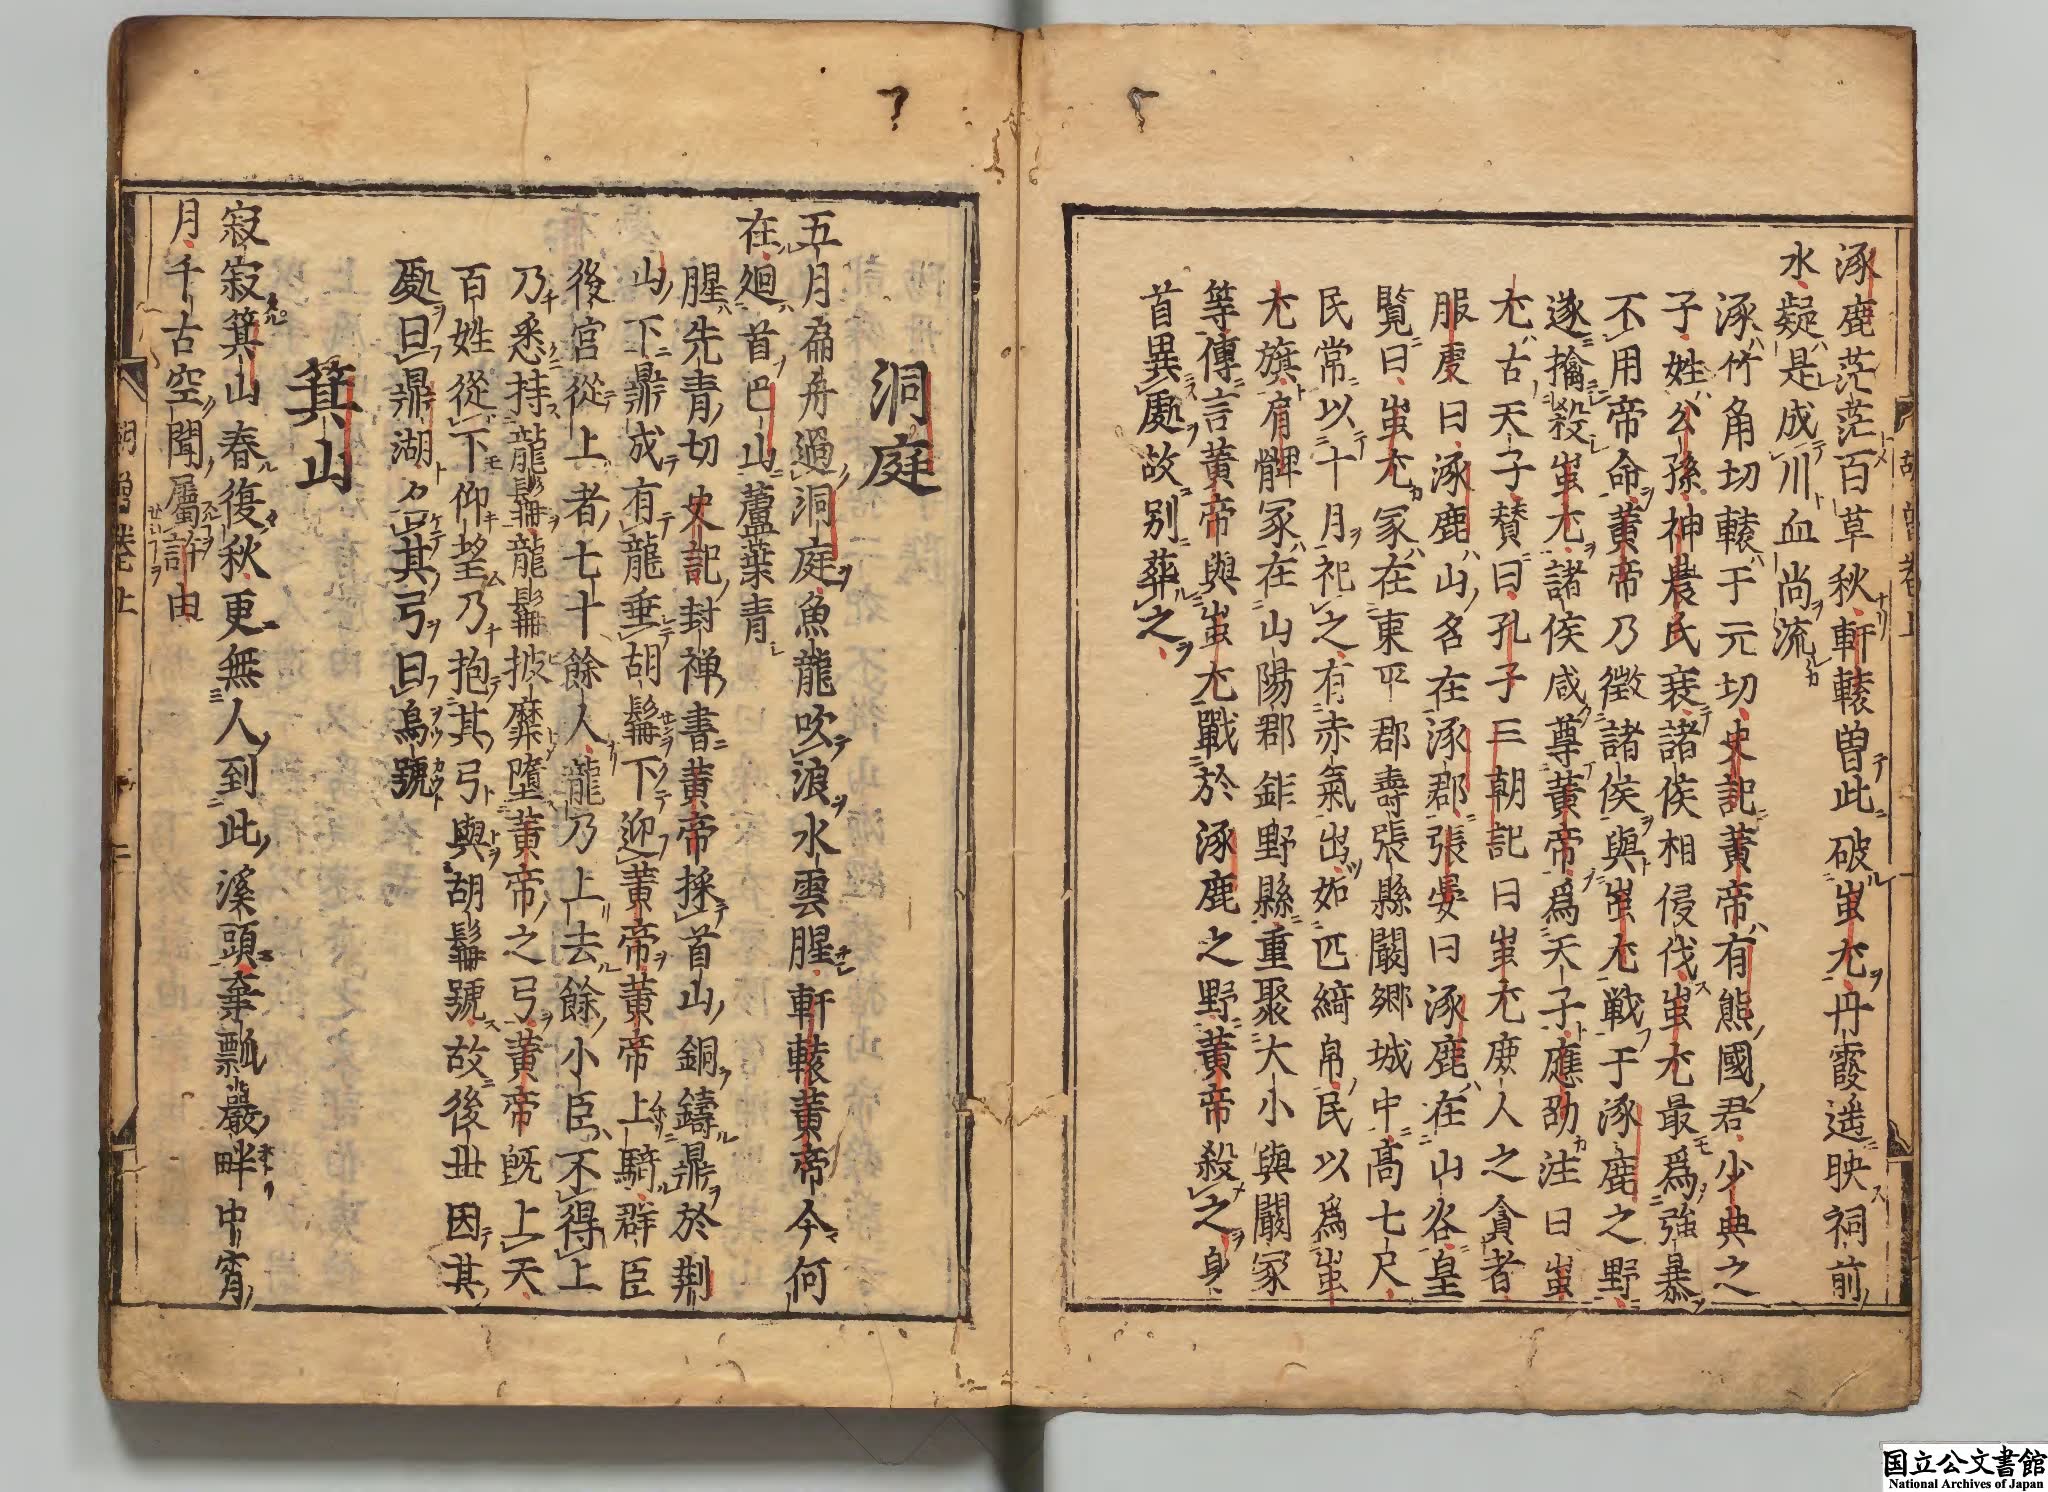 涿鹿茫茫百草秋軒轅曽此破蚩尤丹霞遥映祠前
水疑是成川血尚流
涿竹角切轅于元切史記黄帝有熊國君少典之
子姓公孫神農氏衰諸侯相侵伐蚩尤最爲強暴
不用帝命黄帝乃徴諸侯與蚩尤戦于涿鹿之野
遂擒殺蚩尤諸侯咸尊黄帝爲天子應劭注曰蚩
尤古天子賛曰孔子三朝記曰蚩尤庻人之貪者
服虔曰涿鹿山名在涿郡張晏曰涿鹿在山谷皇
覽曰蚩尤冢在東平郡壽張縣闞郷城中高七尺
民常以十月祀之有赤氣出如匹綺帛民以爲蚩
尤旗肩髀冢在山陽郡鉅野縣重聚大小與闞冢
等傳言黄帝與蚩尤戰於涿鹿之野黄帝殺之身
首異處故别葬之
洞庭
五月扁舟過洞庭魚龍吹浪水雲腥軒轅黄帝今何
在廻首巴山蘆葉青
腥先青切史記封禅書黄帝採首山銅鑄鼎於荆
山下鼎成有龍垂胡髯下迎黄帝黄帝上騎群臣
後宮從上者七十餘人龍乃上去餘小臣不得上
乃悉持龍髯龍髯披靡墮黄帝之弓黄帝既上天
百姓從下仰望乃抱其弓與胡髯號故後丗因其
處曰鼎湖名其弓曰烏號
箕山
寂寂箕山春復秋更無人到此溪頭棄瓢巖畔中宵
月千古空聞屬許由
胡曽巻上
十二
国立公文書館
National Archives of Japan